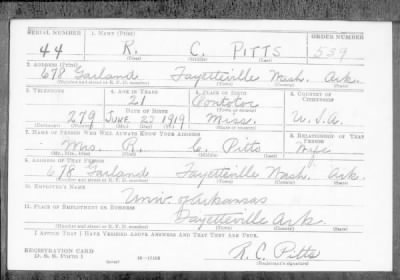 SERIAL NUMBER 1. NAME (Print) ORDER NUMBER
44 R. C. PITTS 539
(First) (Middle) (Last)
2. ADDRESS (Print)
678 Garland Fayetteville Wash. Ark.
(Number and street or R. F. D. number) (Town) (County) (State)
3. TELEPHONE 4. AGE IN YEARS 5. PLACE OF BIRTH 6. COUNTRY OF CITIZENSHIP
21 Pontotoc
DATE OF BIRTH
279 JUNE 22 1919 Miss. U.S.A.
7. NAME OF PERSON WHO WILL ALWAYS KNOW YOUR ADDRESS 8. RELATIONSHIP OF THAT PERSON
Mrs. R. C. Pitts Wife
(Mr., Mrs., Miss) (First) (Middle) (Last)
9. ADDRESS OF THAT PERSON
678 Garland Fayetteville Wash. Ark.
(Number and street or R. F. D. number) (Town) (County) (State)
10. EMPLOYER'S NAME
Univ. of Arkansas
11. PLACE OF EMPLOYMENT OR BUSINESS
Fayetteville Ark.
(Number and street or R. F. D. number) (Town) (County) (State)
I AFFIRM THAT I HAVE VERIFIED ABOVE ANSWERS AND THAT THEY ARE TRUE.
REGISTRATION CARD
D. S. S. Form 1 R. C. Pitts
(Registrant's signature)